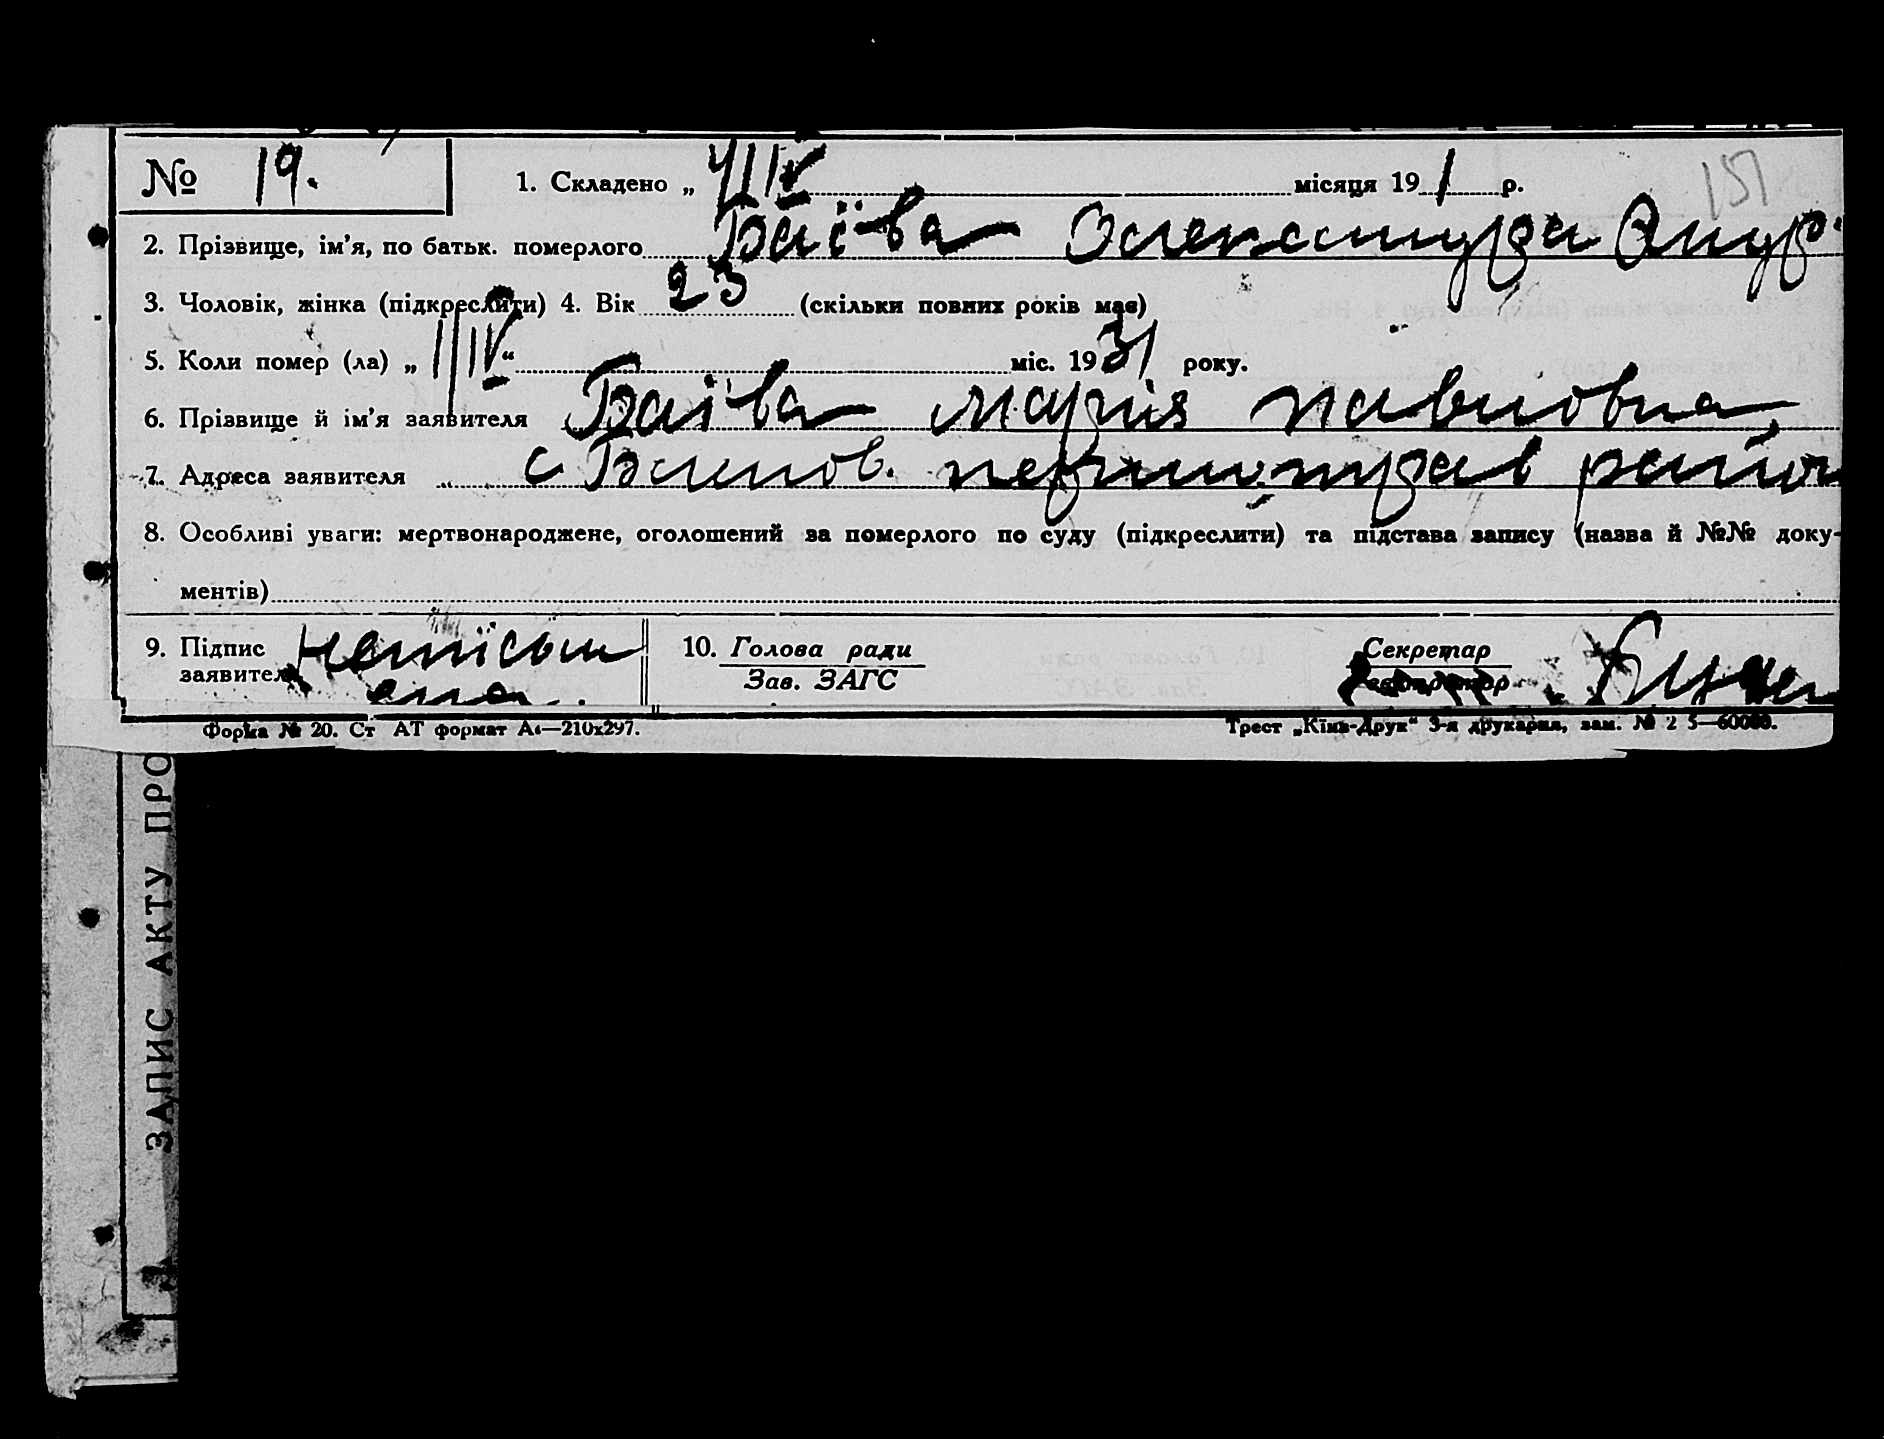 № 19.
1. Складено „ місяця 19 1 р.
151
2. Прізвище, ім'я, по батьк. померлого Баїва Олександра Андр.
3. Чоловік, жінка (підкреслити) 4. Вік 23 (скільки повних років має)
5. Коли помер (ла) „ IV “ міс. 1931 року.
6. Прізвище й ім'я заявителя Баїва Марія Павловна
7. Адреса заявителя с
8. Особливі уваги: мертвонароджене, оголошений за померлого по суду (підкреслити) та підстава запису (назва й №№ доку-
ментів)
9. Підпис заявителя
10. Голова ради
Зав. ЗАГС
Секретар
Форма № 20. Ст АТ формат А4—210х297.
Трест „Київ-Друк“ 3-я друкарня, зам. № 2 5—60000.
ЗАПИС АКТУ ПРО